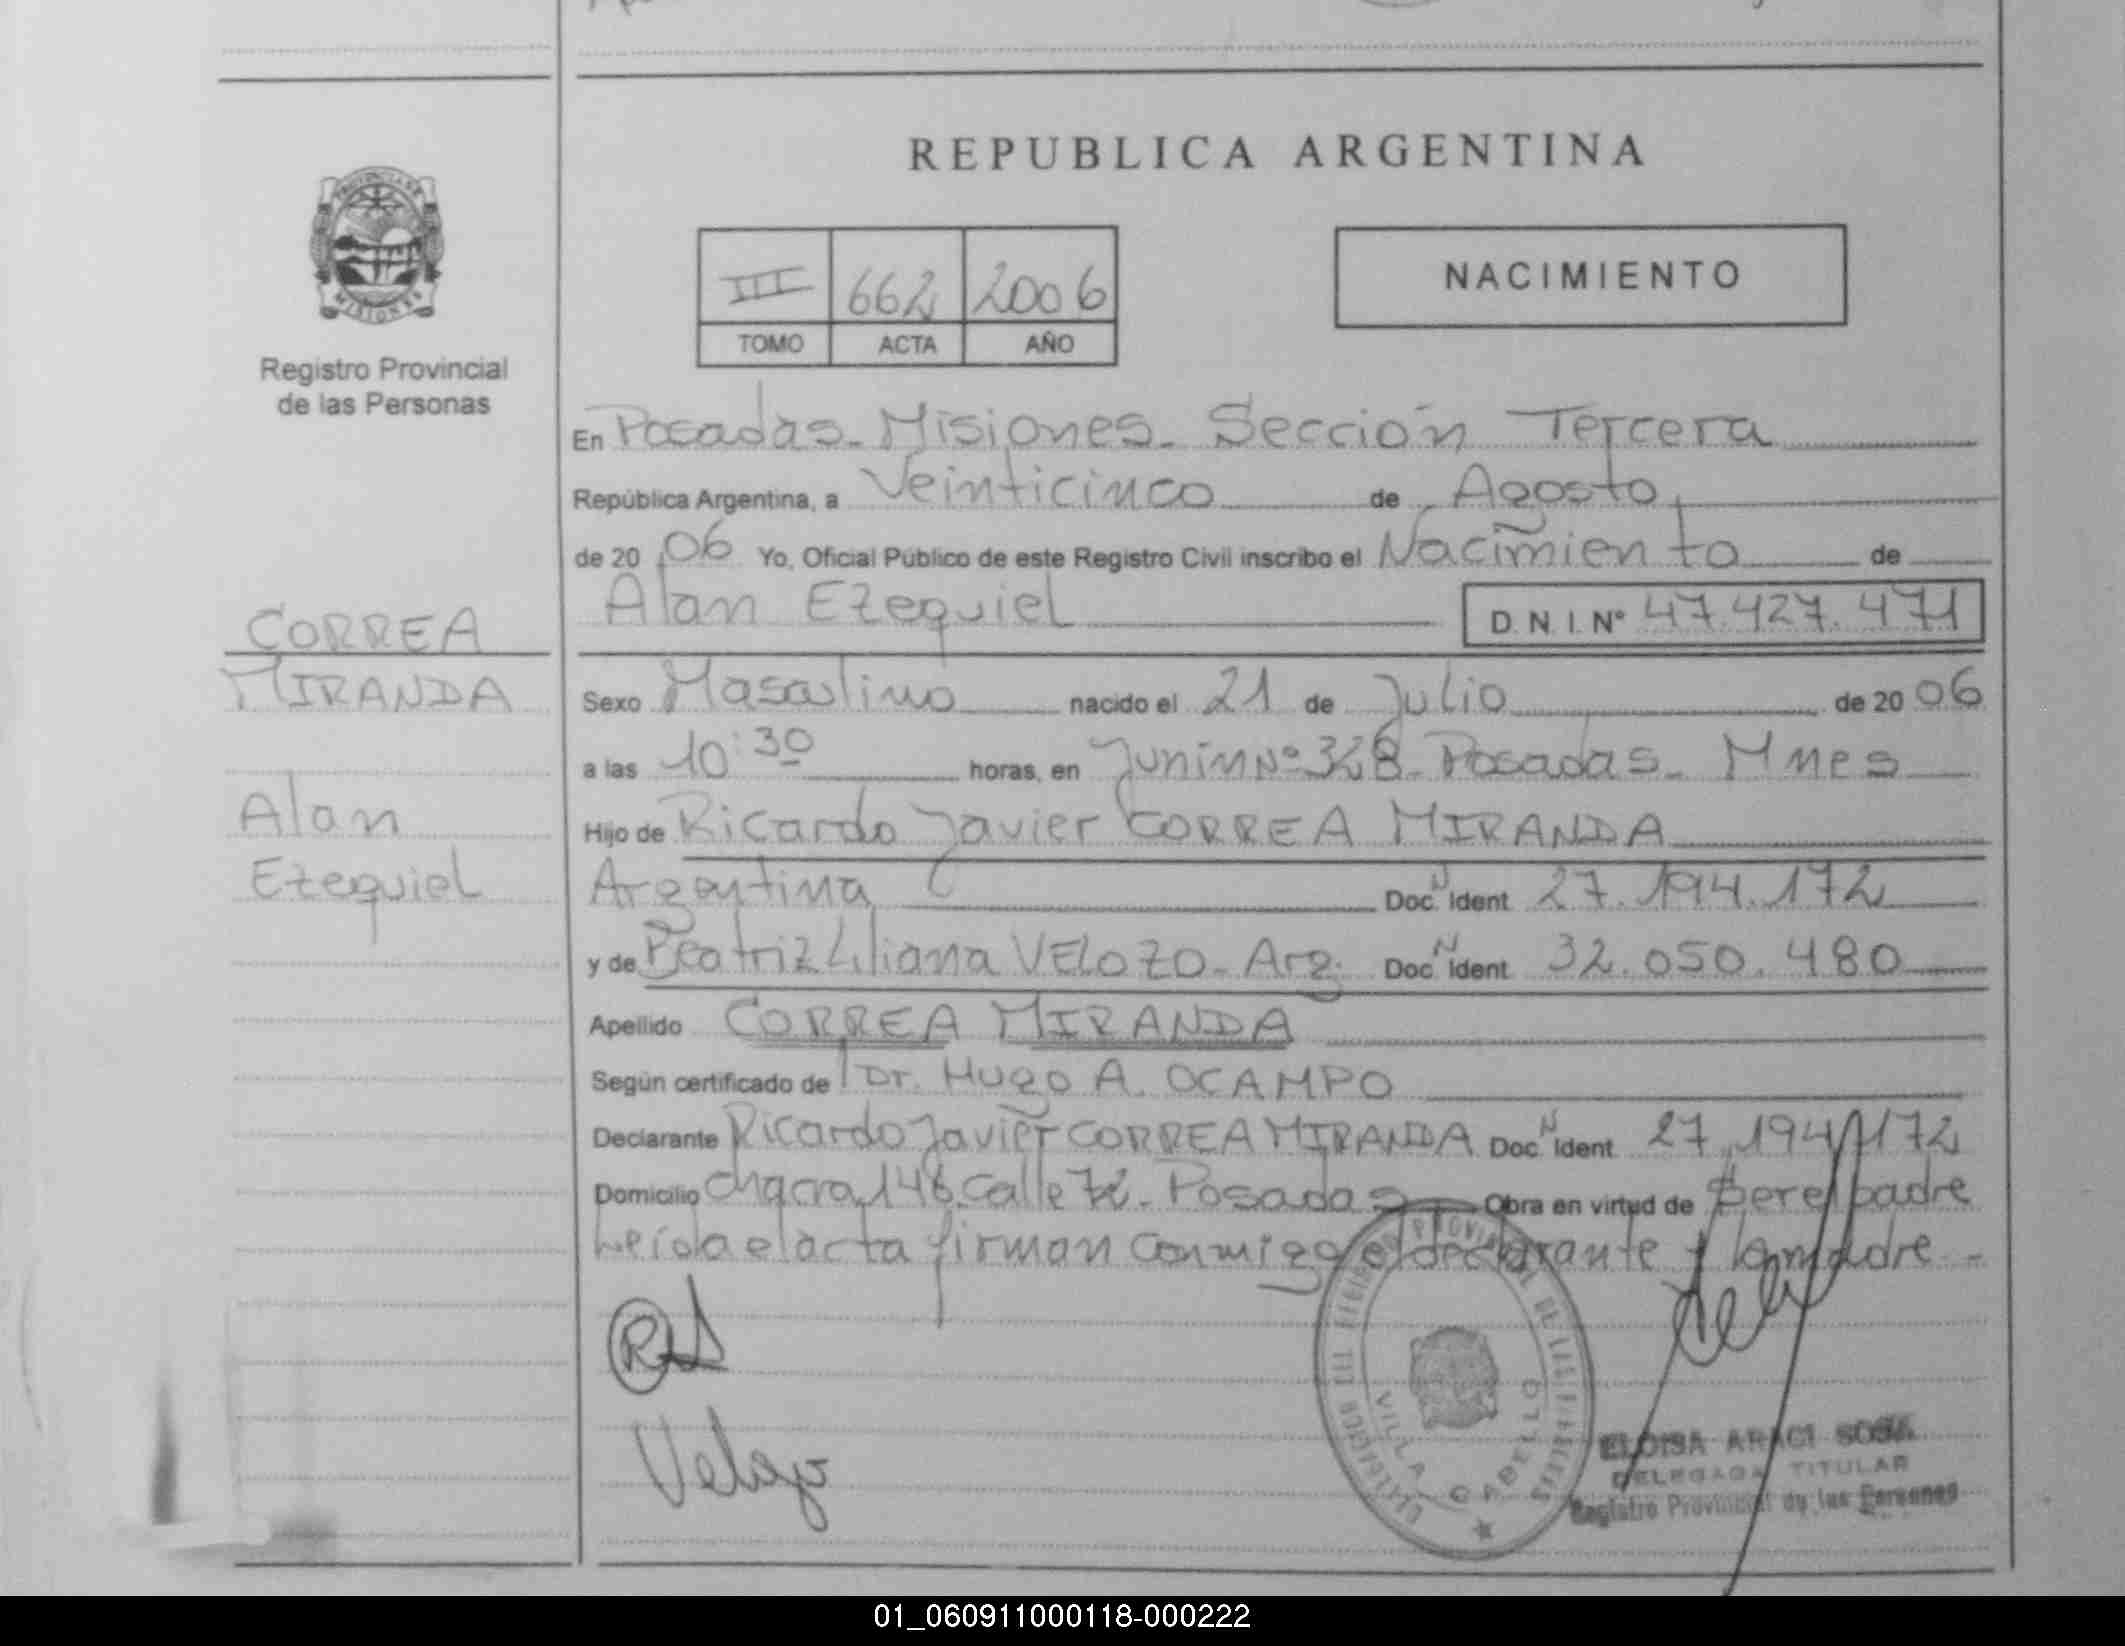 REPUBLICA ARGENTINA
PROVINCIA DE
MISIONES
Registro Provincial
de las Personas
III 662 2006
TOMO ACTA AÑO
NACIMIENTO
En Posadas - Misiones - Sección Tercera
República Argentina, a Veinticinco de Agosto
de 20 06 Yo, Oficial Público de este Registro Civil inscribo el Nacimiento de
Alan Ezequiel D. N. I. Nº 47.427.471
CORREA
MIRANDA
Alan
Ezequiel
Sexo Masculino nacido el 21 de Julio de 20 06
a las 10:30 horas, en Junin Nº 328 - Posadas - Mnes
Hijo de Ricardo Javier CORREA MIRANDA
Argentina Doc. N Ident. 27.194.172
y de Beatriz Liliana VELOZO - Arg. Doc. N Ident. 32.050.480
Apellido CORREA MIRANDA
Según certificado de Dr. Hugo A. OCAMPO
Declarante Ricardo Javier CORREA MIRANDA Doc. N Ident. 27.194.172
Domicilio chacra 148 Calle 72 - Posadas Obra en virtud de ser el padre
Leída el acta firman conmigo el declarante y la madre -
DELEGACION DEL REGISTRO PROVINCIAL DE LAS PERSONAS
VILLA CABELLO
ELOISA ARACI SOSA
DELEGADA TITULAR
Registro Provincial de las Personas
01_060911000118-000222